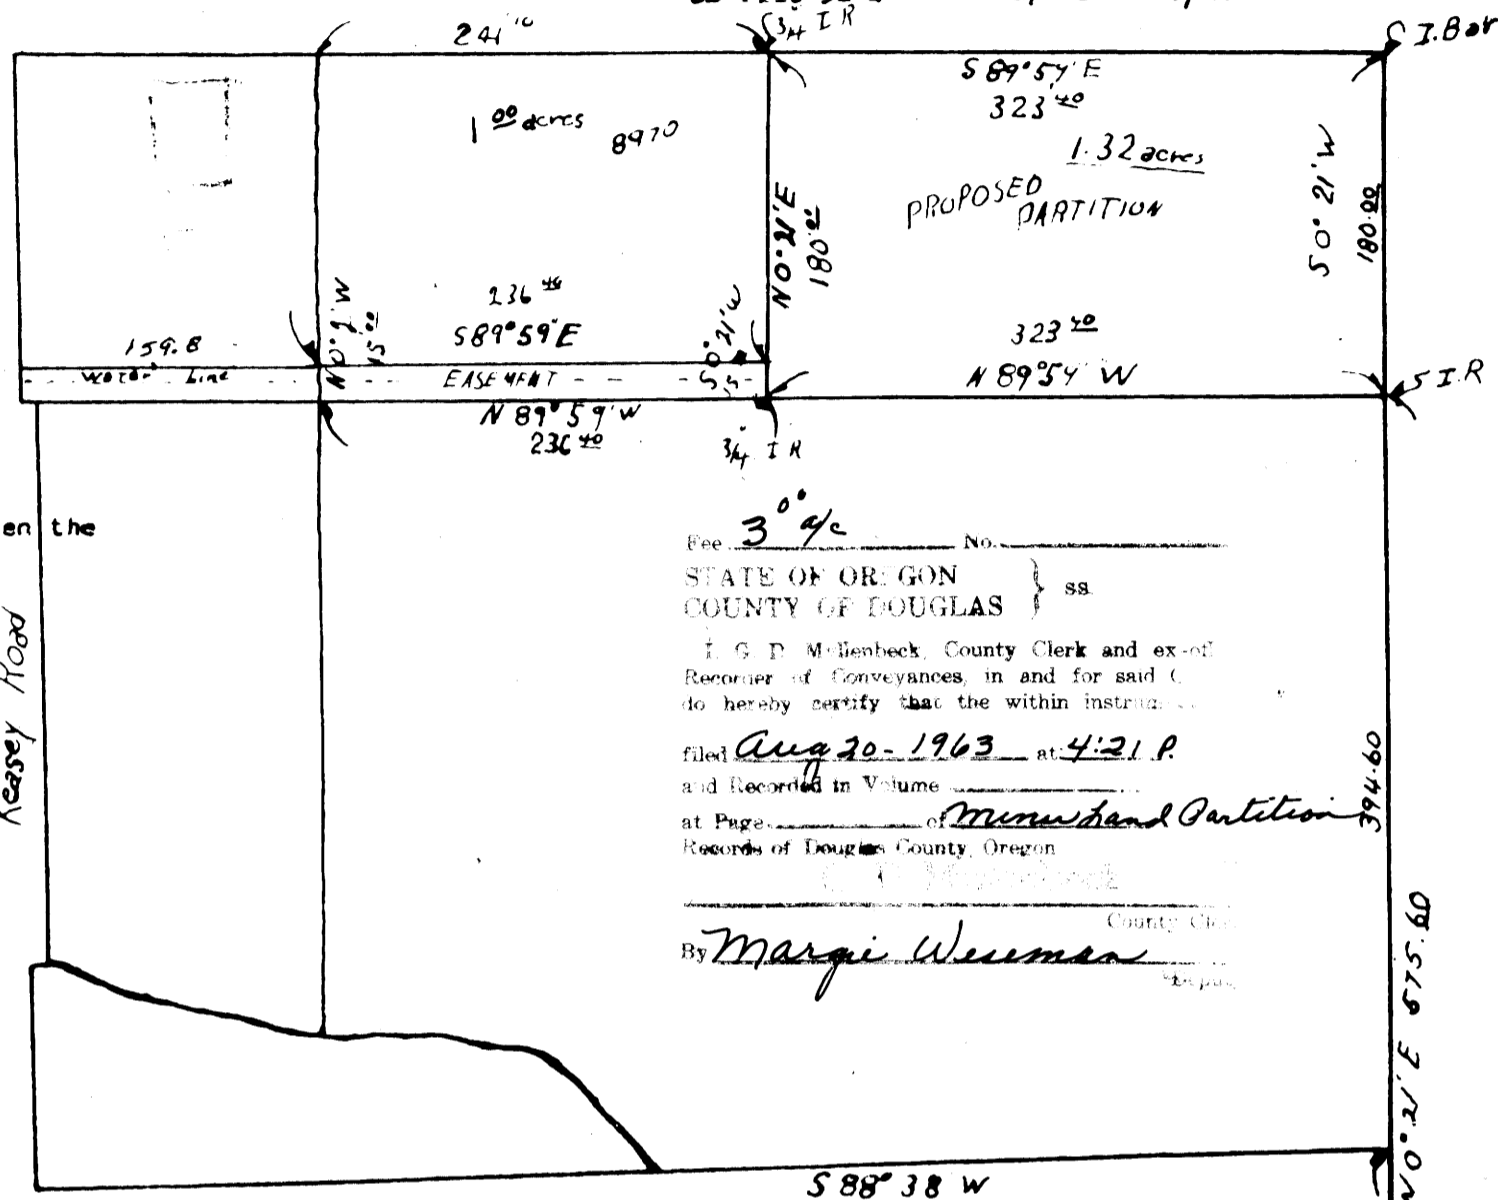 241.10
3/4 I R
I. Bar
S 89° 54' E
323.40
1.00 acres
8970
1.32 acres
PROPOSED
PARTITION
N 0° 21' E
180.00
S 0° 21' W
180.00
236.40
S 89° 59' E
N 0° 2' W
15.00
S 0° 21' W
159.8
water Line
EASEMENT
323.40
N 89° 54' W
I.R
N 89° 59' W
236.40
3/4" I R
en the
Keasey Road
Fee 3.00 a/c No.
STATE OF OREGON
COUNTY OF DOUGLAS } ss
I, G. D. County Clerk and ex-of
Recorder of Conveyances, in and for said C
do hereby certify that the within instru
filed Aug 20 - 1963 at 4:21 P.
and Recorded in Volume
at Page of Minor Land Partition
Records of Douglas County, Oregon
County Cle
By Margie Weseman
Depu
394.60
N 0° 21' E 575.60
S 88° 38 W